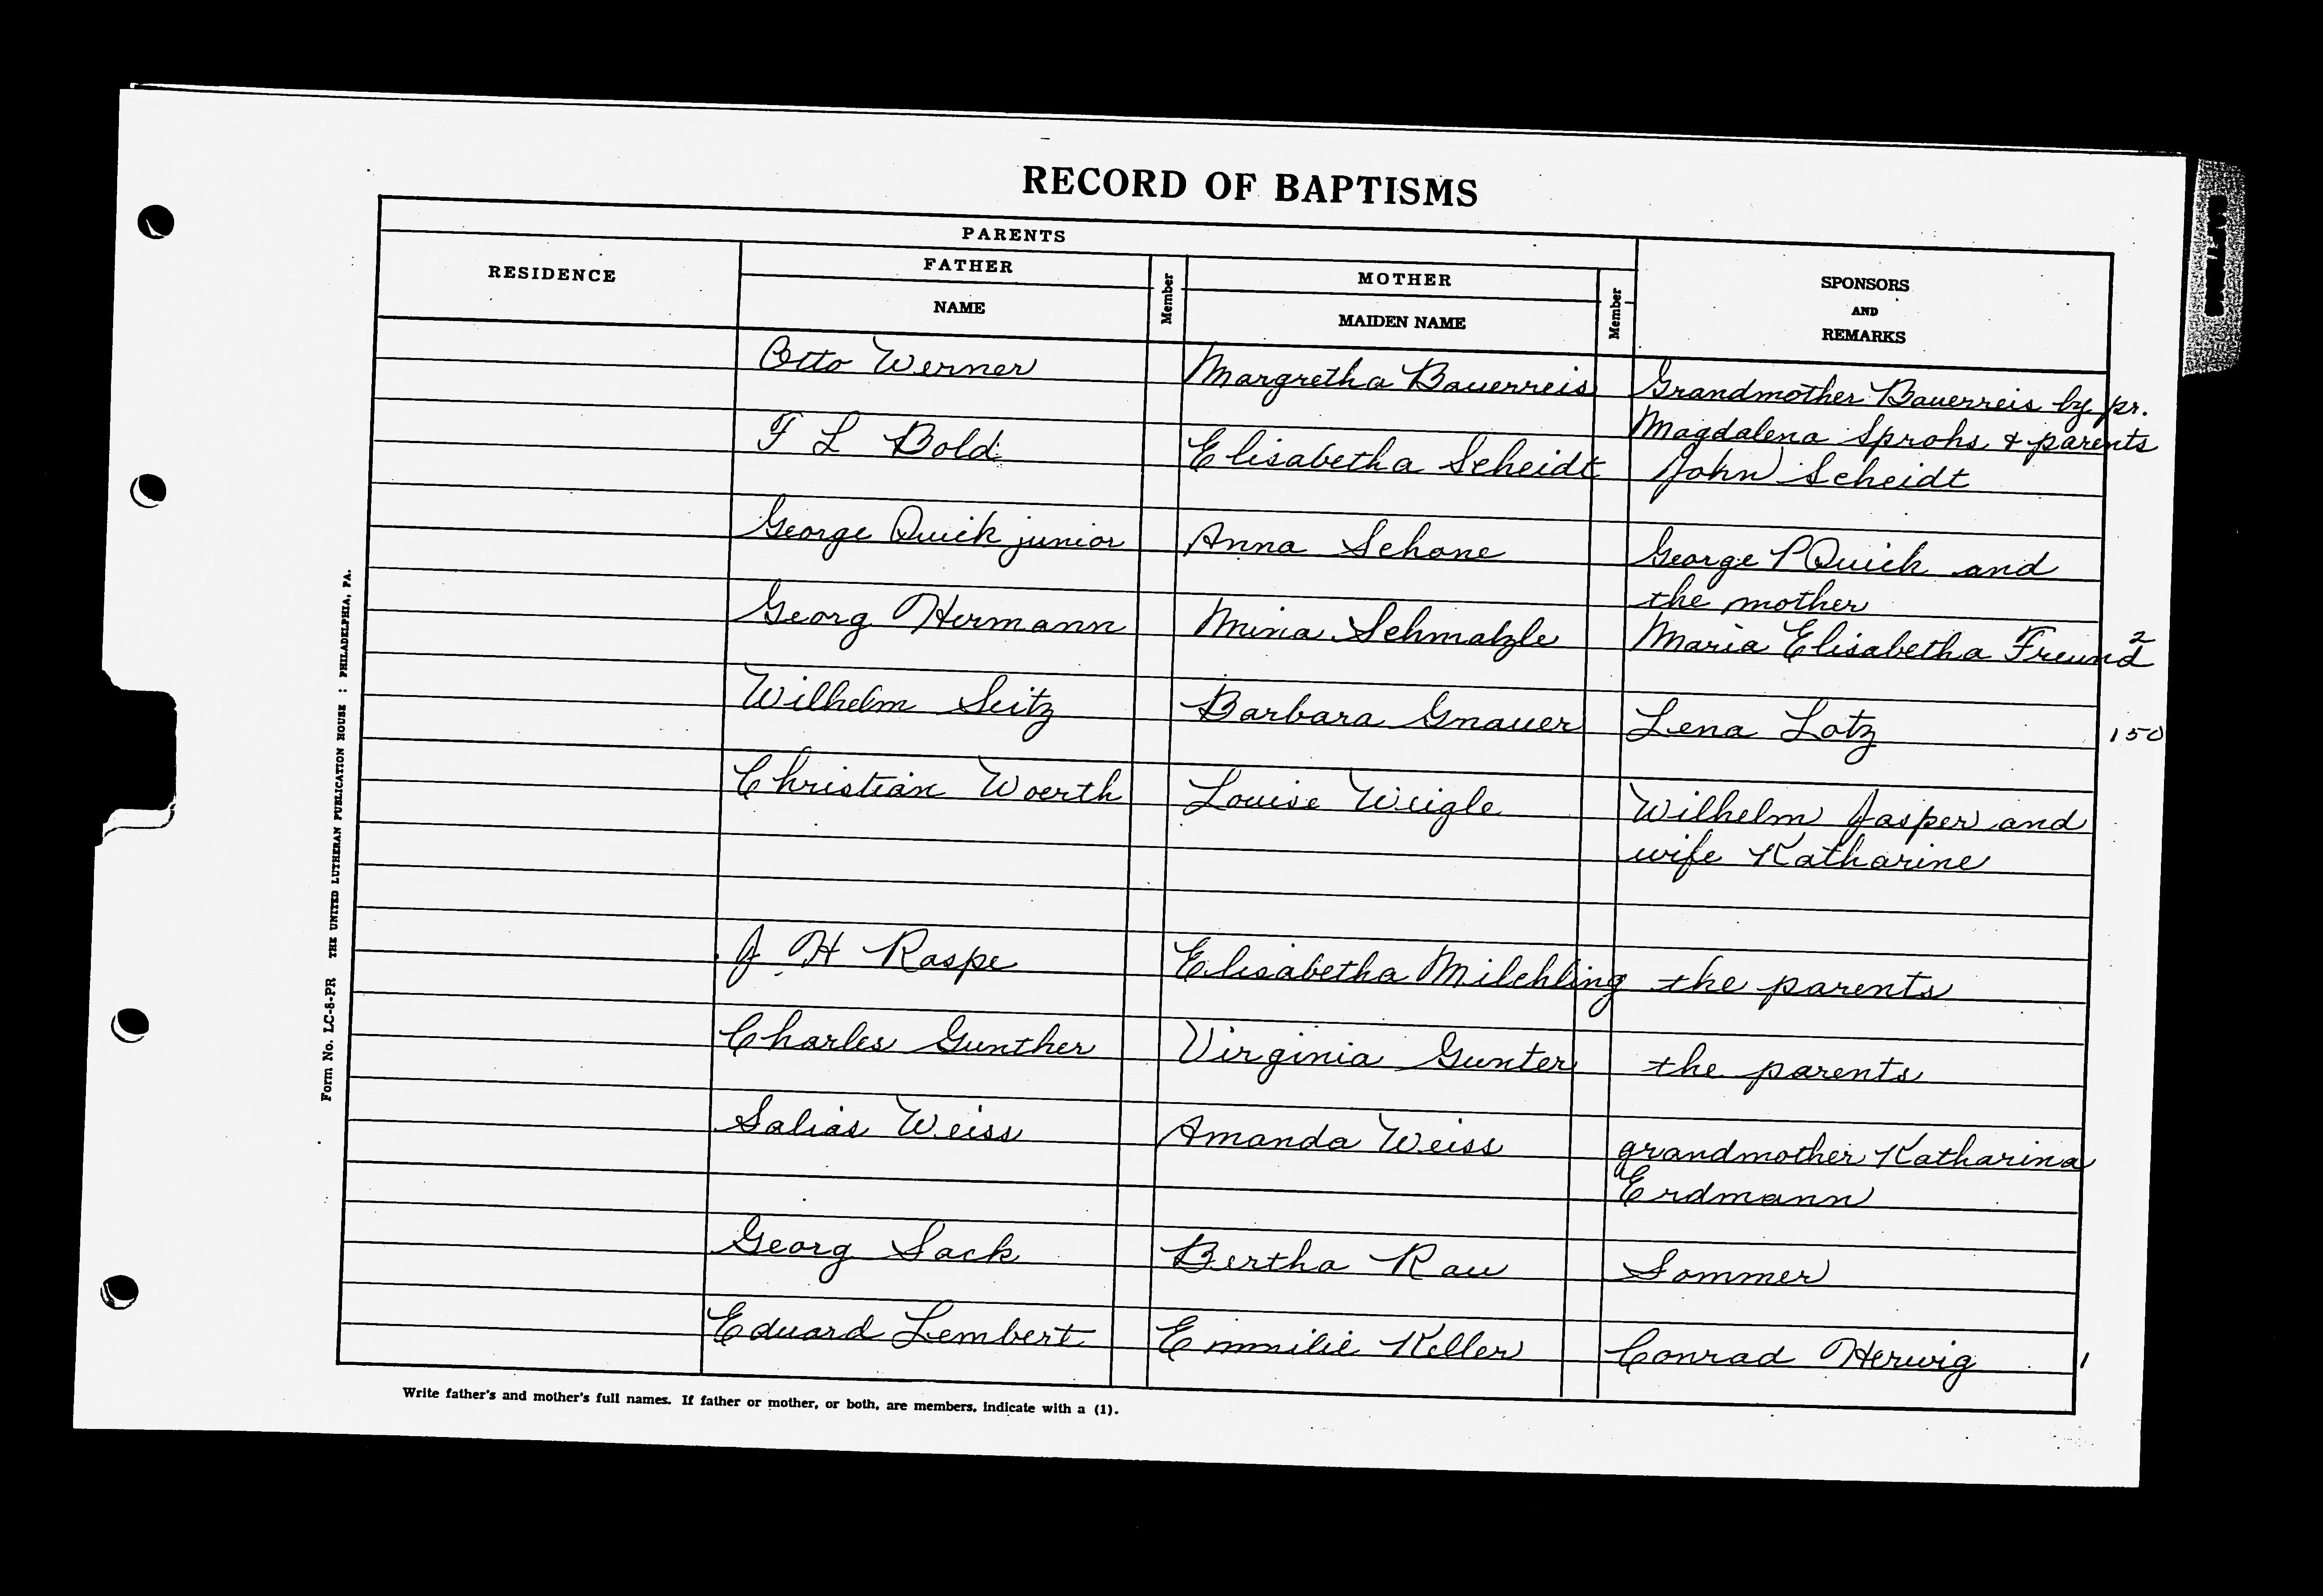 RECORD OF BAPTISMS
PARENTS
RESIDENCE
FATHER
NAME
Member
MOTHER
MAIDEN NAME
Member
SPONSORS
AND
REMARKS
Otto Werner Margretha Bauerreis Grandmother Bauerreis by pr.
Magdalena Sprohs & parents
F L Bold Elisabetha Scheidt John Scheidt
George Quick junior Anna Schone George P Quick and
the mother
Georg Hermann Mina Schmalzle Maria Elisabetha Freund 2
Wilhelm Seitz Barbara Gnauer Lena Lotz 150
Christian Woerth Louise Weigle Wilhelm Jasper and
wife Katharine
J H Raspe Elisabetha Milchling the parents
Charles Gunther Virginia Gunter the parents
Salias Weiss Amanda Weiss grandmother Katharina
Erdmann
Georg Sack Bertha Rau Sommer
Eduard Lembert Emmilie Keller Conrad Herwig 1
Write father's and mother's full names. If father or mother, or both, are members, indicate with a (1).
Form No. LC-8-PR THE UNITED LUTHERAN PUBLICATION HOUSE : PHILADELPHIA, PA.